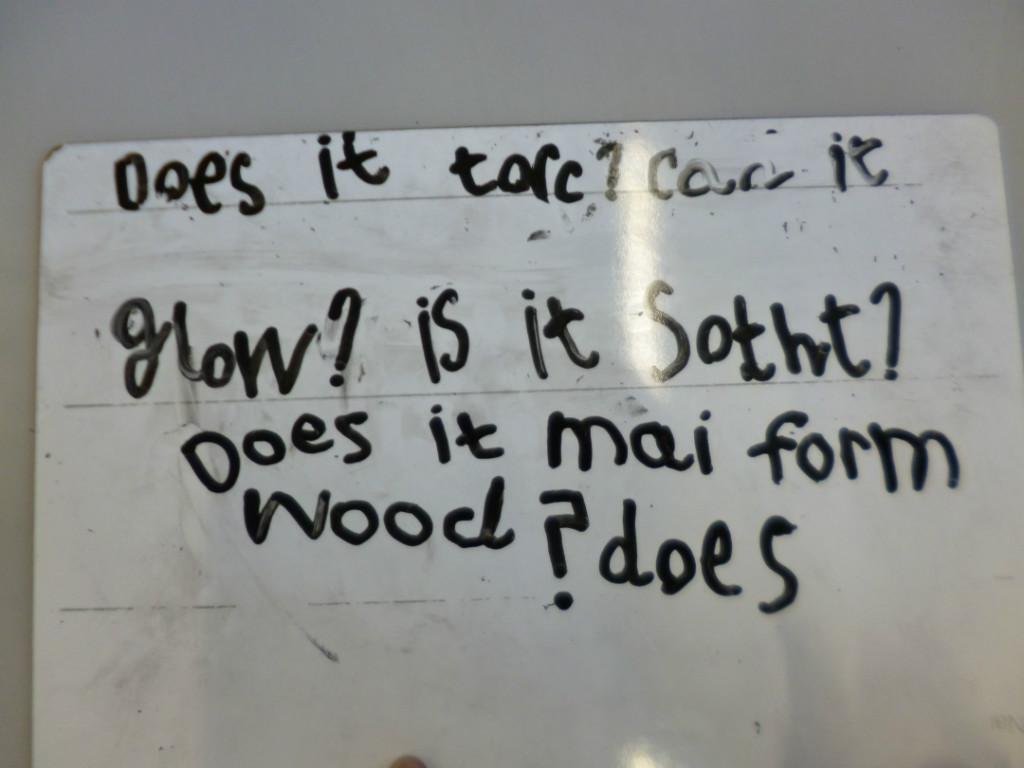 Does it torc? Can it
glow? is it Sotht?
Does it mai form
wood? does